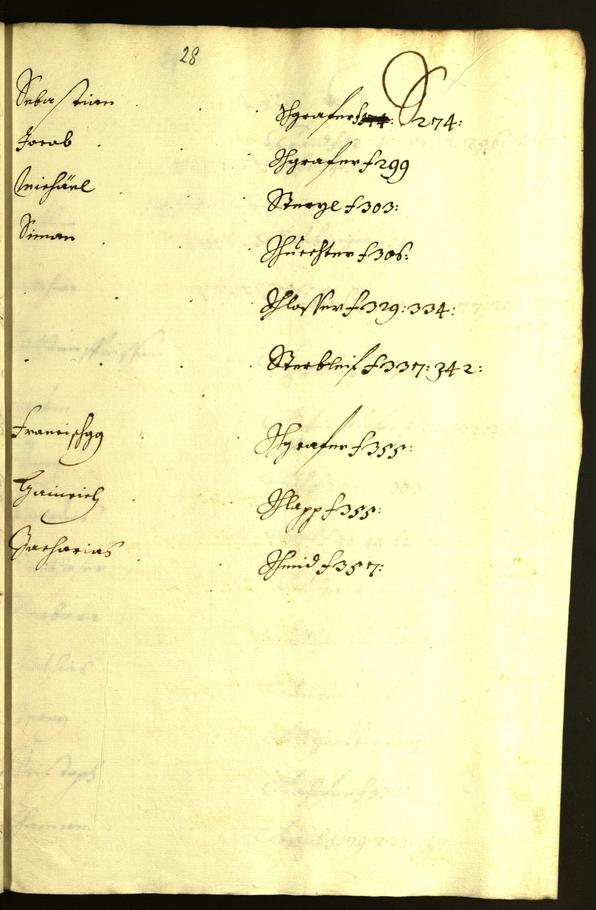 28
S
Sebastian Schgrafer f 274:
Jacob Schgrafer f 299
Michäel Steryl f 303:
Simon Schuechter f 306:
Schlosser f 329: 334:
Sterbleif f 337: 342:
Francischgg Schgrafer f 355:
Hainrich Schlapp f 355:
Zacharias Schmid f 357: